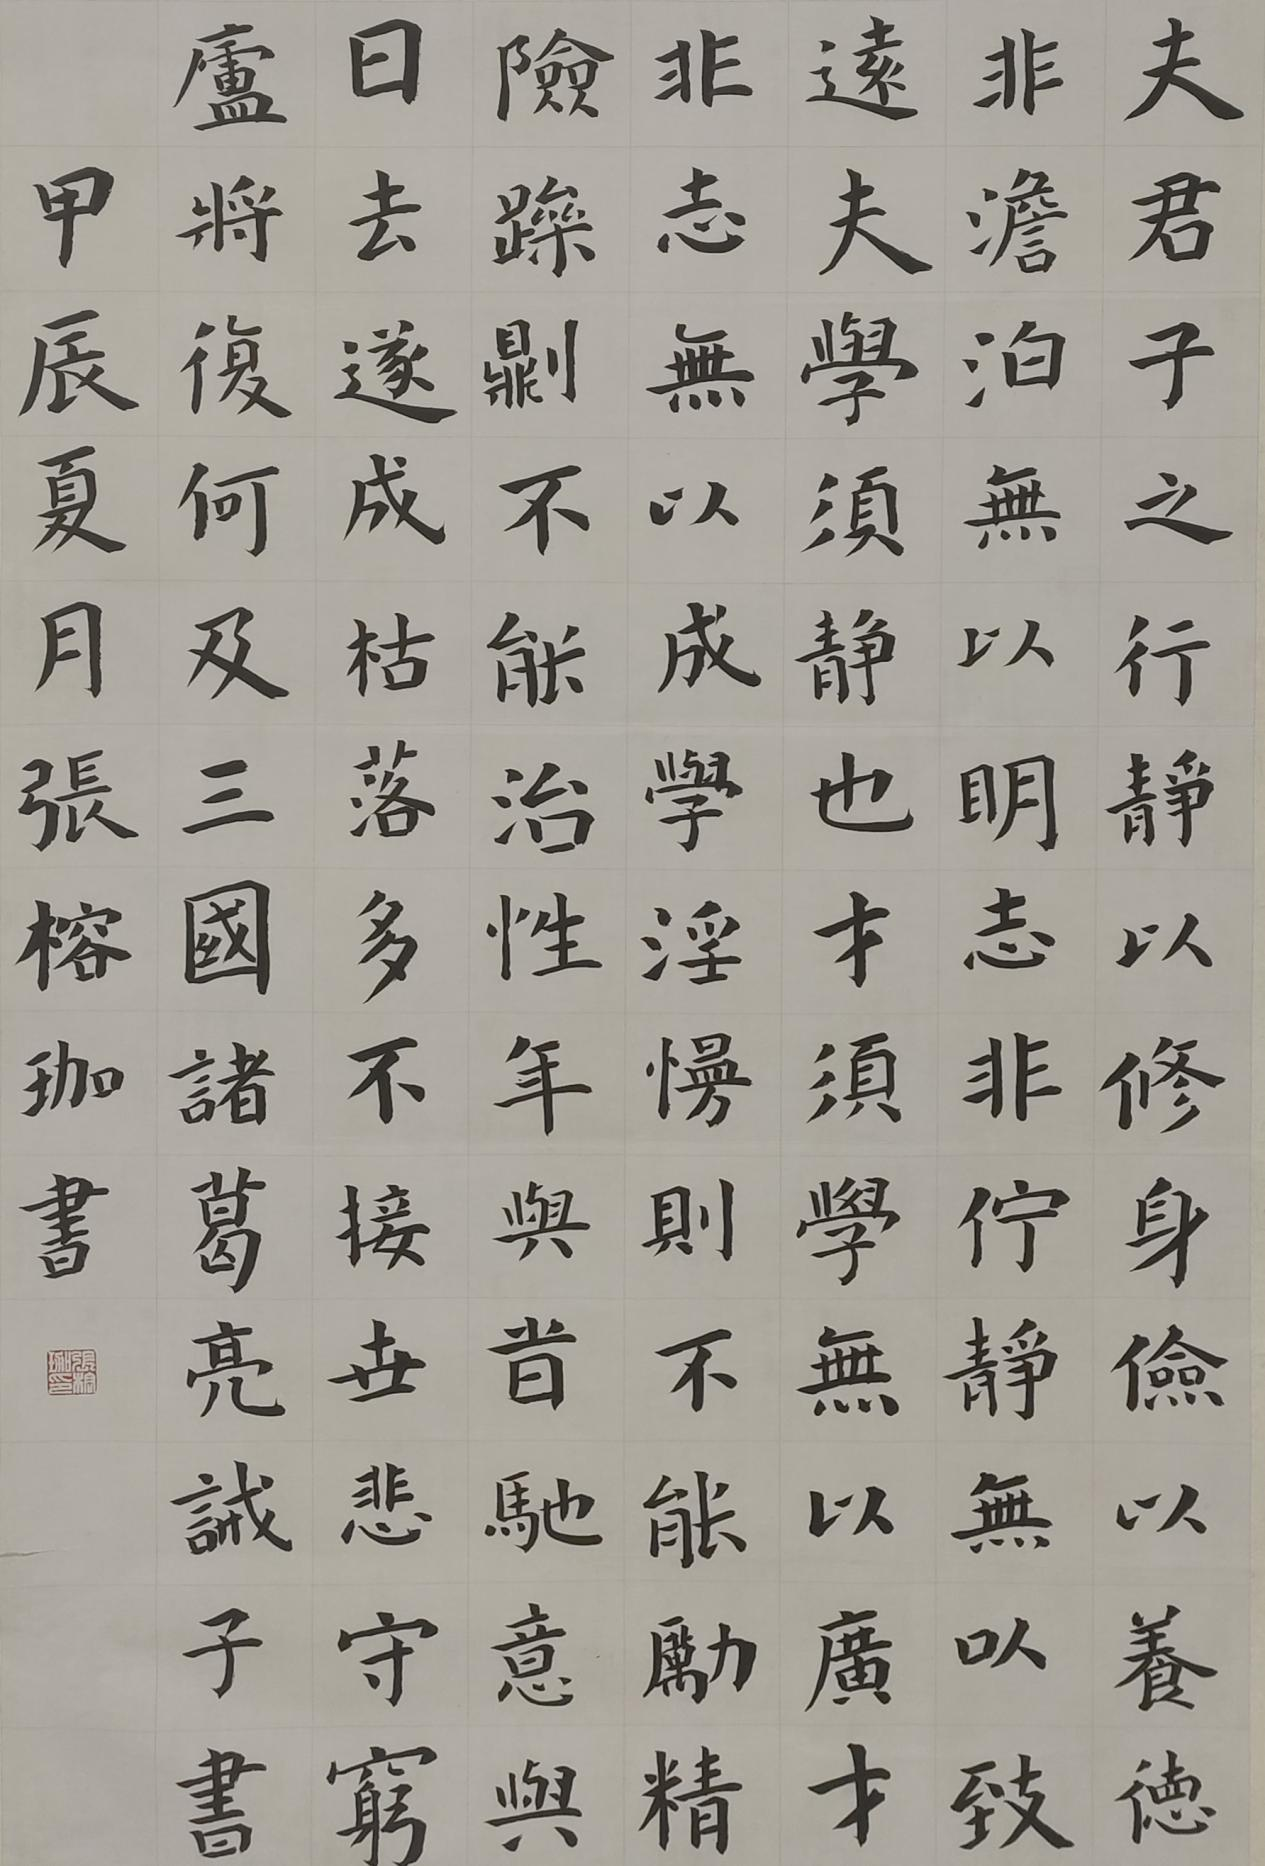 夫君子之行靜以修身儉以養德
非澹泊無以明志非佇靜無以致
遠夫學須靜也才須學學無以廣才
非志無以成學淫慢則不能勵精
險躁剛不能治性年與旹馳意與
日去遂成枯落多不接世悲守窮
廬將復何及三國諸葛亮誡子書
甲辰夏月張榕珈書